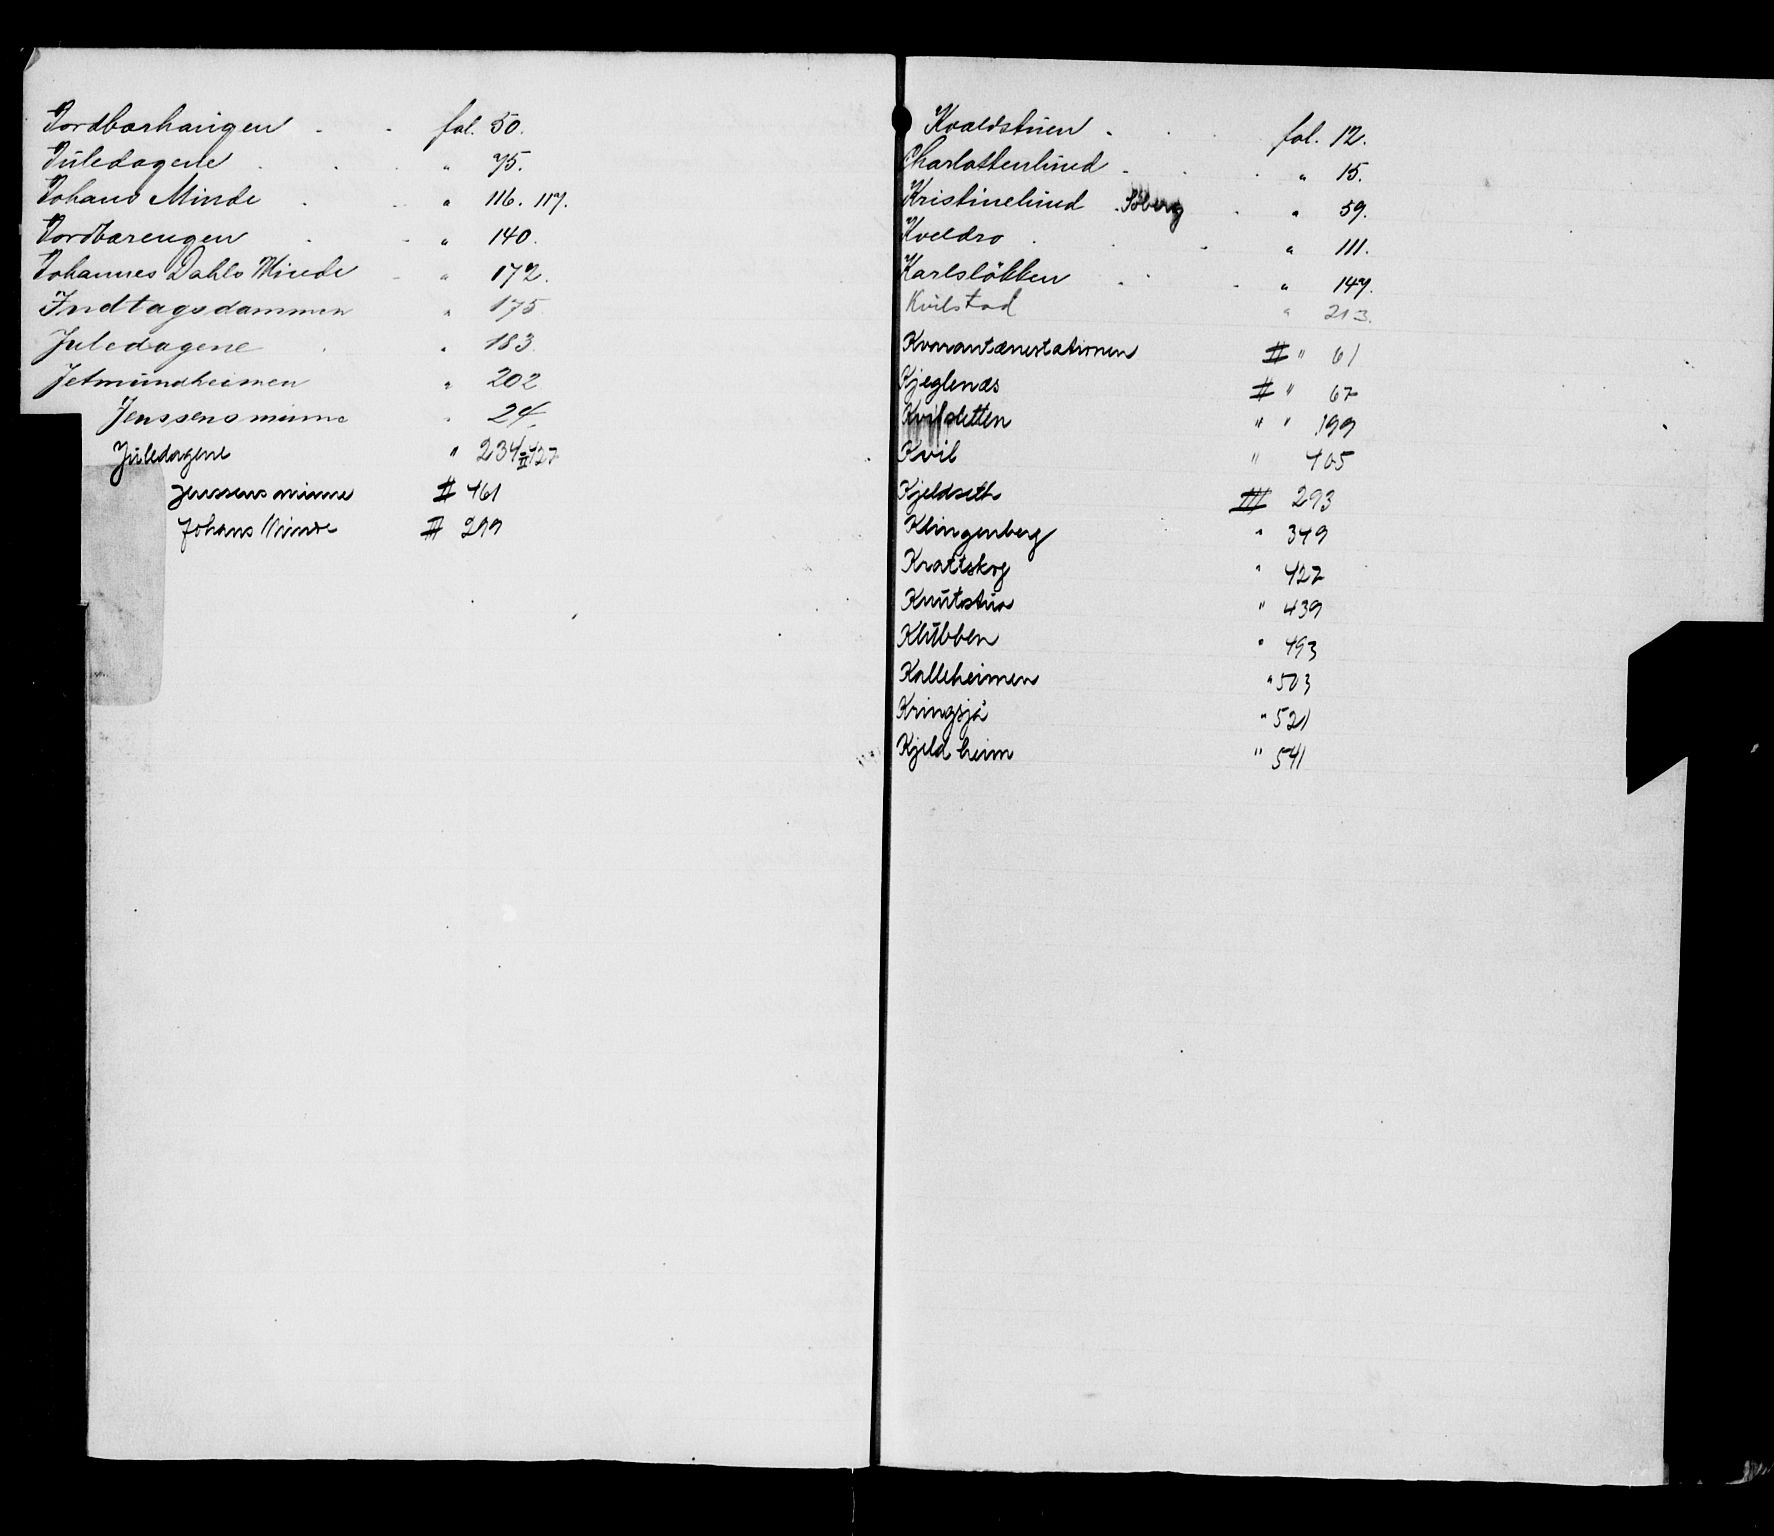 Jordbærhaugen . . fol. 50.
Juledagene . . . " 75.
Johans Minde . . " 116. 117.
Jordbærengen . . " 140.
Johannes Dahls Minde - " 172.
Indtagsdammen " 175
Juledagene . " 183
Jetmundheimen " 202
Jenssensminne " 24
Juledagene " 234 = II 427
Jenssens minne II 461
Johans Minde III 299
Kvældstuen . . fol. 12.
Charlottenlund . . . " 15.
Kristinelund . Solberg . " 59.
Kveldro . . . " 111.
Karlsløkken . . . " 147.
Kvilstad " 213.
Kvarantænestationen II " 61
Kjeglenæs II " 67
Kvilsletten " " 199
Kvil " 405
Kjeldseth III 293
Klingenberg " 349
Krattskog " 427
Knutstua " 439
Klubben " 493
Kalleheimen " 503
Kringsjå " 521
Kjeldheim " 541